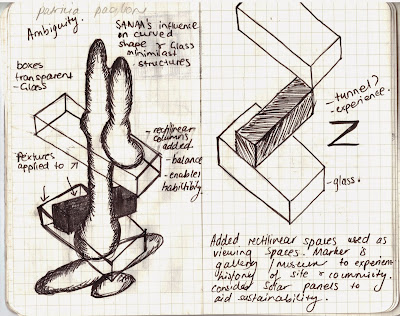 patricia pavilions
Ambiguity.
SANAA's influence
on curved
shape & Glass
minimilast
structures
boxes
transparent
- Glass
- rectilinear
columns
added.
- balance
- enables
habitibly.
textures
applied to ↗
- tunnel?
- experience.
Z
- glass.
Added rectilinear spaces used as
viewing spaces. Marker is
gallery / museum to experience
history of site & community.
consided solar panels to
aid sustainability.